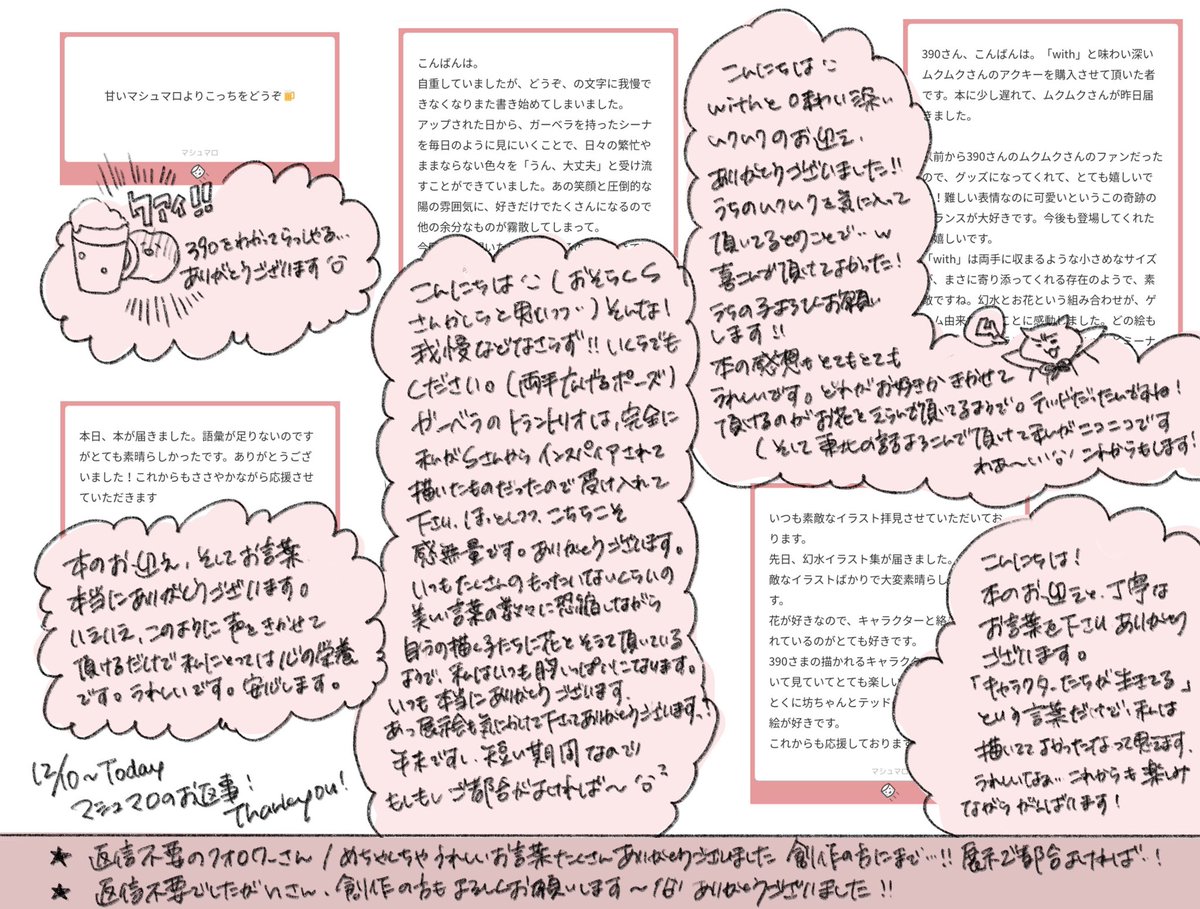 甘いマシュマロよりこっちをどうぞ🍺
マシュマロ
クァィ!!
390をわかってらっしゃる…
ありがとうございます
こんばんは。
自重していましたが、どうぞ、の文字に我慢で
きなくなりまた書き始めてしまいました。
アップされた日から、ガーベラを持ったシーナ
を毎日のように見にいくことで、日々の繁忙や
ままならない色々を「うん、大丈夫」と受け流
すことができていました。あの笑顔と圧倒的な
陽の雰囲気に、好きだけでたくさんになるので
他の余分なものが霧散してしまって。
こんにちは (おそらくS
さんかしらと思いつつ…)そんな!
我慢などなさらず!!いくらでも
ください。(両手広げるポーズ)
ガーベラのトラントリオは、完全に
私がSさんから インスパイアされて
描いたものだったので 受け入れて
下さり、ほっとしつつ、こちらこそ
感無量です。ありがとうございます。
いつもたくさんの もったいないくらいの
美しい言葉の数々に恐縮しながら
自分の描く子たちに花を そえて頂いている
ようで、私はいつも胸いっぱいになります。
いつも 本当にありがとうございます。
あっ展示会も気にかけて下さってありがとうございます…!
年末ですし、短い期間なので
もしもし ご都合がよければ〜
390さん、こんばんは。「with」と味わい深い
ムクムクさんのアクキーを購入させて頂いた者
です。本に少し遅れて、ムクムクさんが昨日届
きました。
前から390さんのムクムクさんのファンだった
ので、グッズになってくれて、とても嬉しいで
!難しい表情なのに可愛いというこの奇跡の
ランスが大好きです。今後も登場してくれた
嬉しいです。
「with」は両手に収まるような小さめなサイズ
、まさに寄り添ってくれる存在のようで、素
敵ですね。幻水とお花という組み合わせが、ゲ
ム由来 ことに感動しました。どの絵も
こんにちは
withと味わい深い
ムクムクのお迎え、
ありがとうございました!!
うちのムクムクを気に入って
頂いてるとのことで…w
喜こんで頂けてよかった!
うちの子よろしくお願い
します!!
本の感想もとてもとても
うれしいです。どれがお好きか きかせて
頂けるのがお花をえらんで頂いてるようで。テッドだったんですね!
(そして 東北の話よろこんで頂けて私がニコニコです
わぁ〜い これからもします!
本日、本が届きました。語彙が足りないのです
がとても素晴らしかったです。ありがとうござ
いました!これからもささやかながら応援させ
ていただきます
本のお迎え、そしてお言葉
本当にありがとうございます。
いえいえ、このように 声を きかせて
頂けるだけで 私にとっては 心の栄養
です。うれしいです。安心します。
いつも素敵なイラスト拝見させていただいてお
ります。
先日、幻水イラスト集が届きました。
敵なイラストばかりで大変素晴らし
す。
花が好きなので、キャラクターと絡
れているのがとても好きです。
390さまの描かれるキャラク
いて見ていてとても楽し
とくに坊ちゃんとテッド
絵が好きです。
これからも応援しております
マシュマロ
こんにちは!
本のお迎えと、丁寧な
お言葉を下さり ありがとう
ございます。
「キャラクターたちが生きてる」
という言葉だけで、私は
描いてて よかったなって思えます。
うれしいなぁ… これからも 楽しみ
ながら がんばります!
12/10〜Today
マシュマロのお返事!
Thank you!
★ 返信不要のフォロワーさん / めちゃくちゃ うれしいお言葉たくさん ありがとうございました 創作の方にまで…!! 展示ご都合よければ…!
★ 返信不要でした さん、創作の方も よろしくお願いします〜 ありがとうございました!!